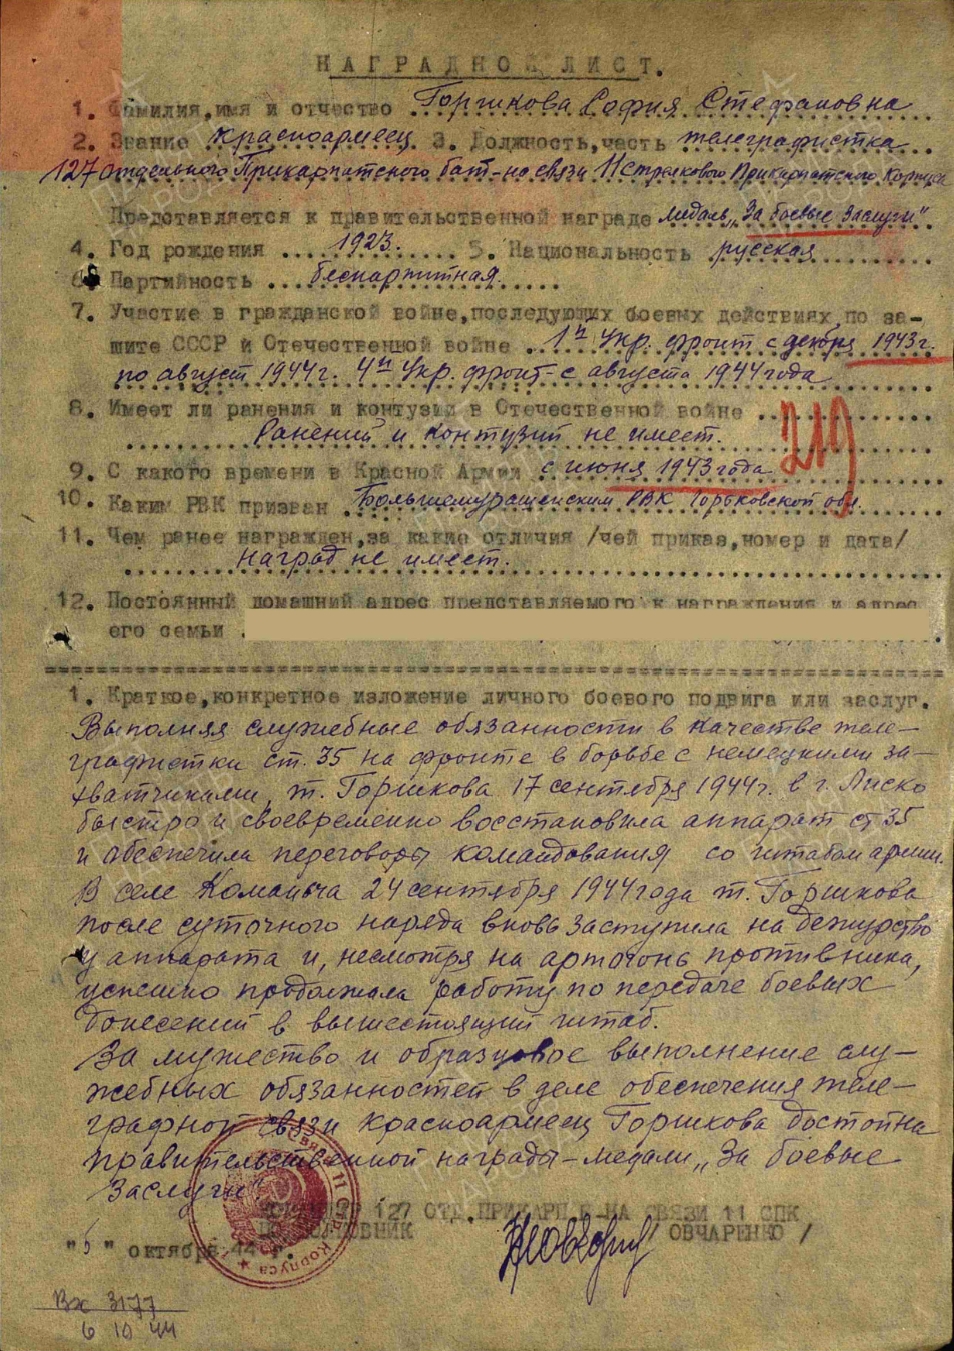 НАГРАДНОЙ ЛИСТ.
1. Фамилия,имя и отчество Горшкова София Стефановна
2. Звание красноармеец. 3. Должность,часть телеграфистка
127 отдельного Прикарпатского бат-на связи 11 Стрелкового Прикарпатского Корпуса
Представляется к правительственной награде медаль „За боевые заслуги"
4. Год рождения 1923. 5. Национальность русская
6. Партийность беспартитная.
7. Участие в гражданской войне,последующих боевых действиях по за-
щите СССР и Отечественной войне 1й Укр. фронт с декабря 1943 г.
по август 1944 г. 4й Укр. фронт с августа 1944 года
8. Имеет ли ранения и контузии в Отечественной войне
Ранений и контузий не имеет.
219
9. С какого времени в Красной Армии с июня 1943 года
10. Каким РВК призван Большемурашкенским РВК Горьковской обл.
11. Чем ранее награжден,за какие отличия /чей приказ,номер и дата/
наград не имеет.
12. Постоянный домашний адрес представляемого к награждения и адрес
его семьи
1. Краткое,конкретное изложение личного боевого подвига или заслуг.
Выполняя служебные обязанности в качестве теле-
графистки ст. 35 на фронте в борьбе с немецкими за-
хватчиками, т. Горшкова 17 сентября 1944 г. в г. Лиско
быстро и своевременно восстановила аппарат ст 35
и обеспечила переговоры командования со штабом армии.
В селе Команьча 24 сентября 1944 года т. Горшкова
после суточного наряда вновь заступила на дежурство
у аппарата и, несмотря на артогонь противника,
успешно продолжала работу по передаче боевых
донесений в вышестоящий штаб.
За мужество и образцовое выполнение слу-
жебных обязанностей в деле обеспечения теле-
графной связи красноармеец Горшкова достойна
правительственной награды – медали „За боевые
заслуги".
КОМАНДИР 127 ОТД.ПРИКАРП.Б-НА СВЯЗИ 11 СПК
ПОДПОЛКОВНИК ОВЧАРЕНКО /
"5" октября 44 г.
Вх 3177
6 10 44